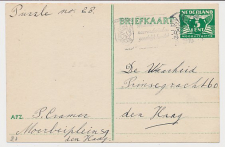 Puzzle no. 28.
BRIEFKAART
NEDERLAND
CENT
De Waarheid
Prinsegracht 60
den Haag
AFZ. S. Cramer
Moerbeiplein 9
den Haag